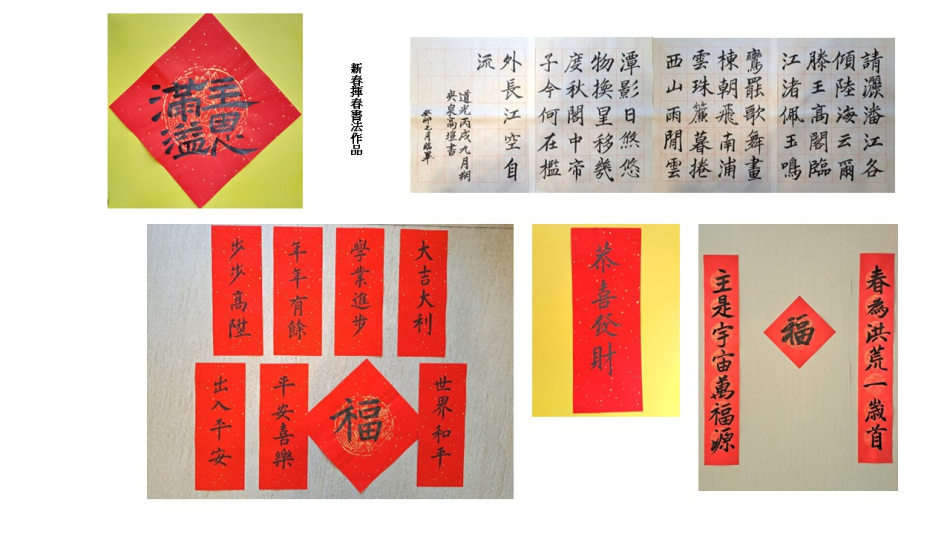 主恩
滿溢
新春揮春書法作品
請灑潘江各
傾陸海云爾
滕王高閣臨
江渚佩玉鳴
鸞罷歌舞畫
棟朝飛南浦
雲珠簾暮捲
西山雨閒雲
潭影日悠悠
物換星移幾
度秋閣中帝
子今何在檻
外長江空自
流
道光丙戌九月朔
泉高塏書
癸卯七月臨
大吉大利
學業進步
年年有餘
步步高陞
世界和平
福
平安喜樂
出入平安
恭喜發財
春為洪荒一歲首
福
主是宇宙萬福源